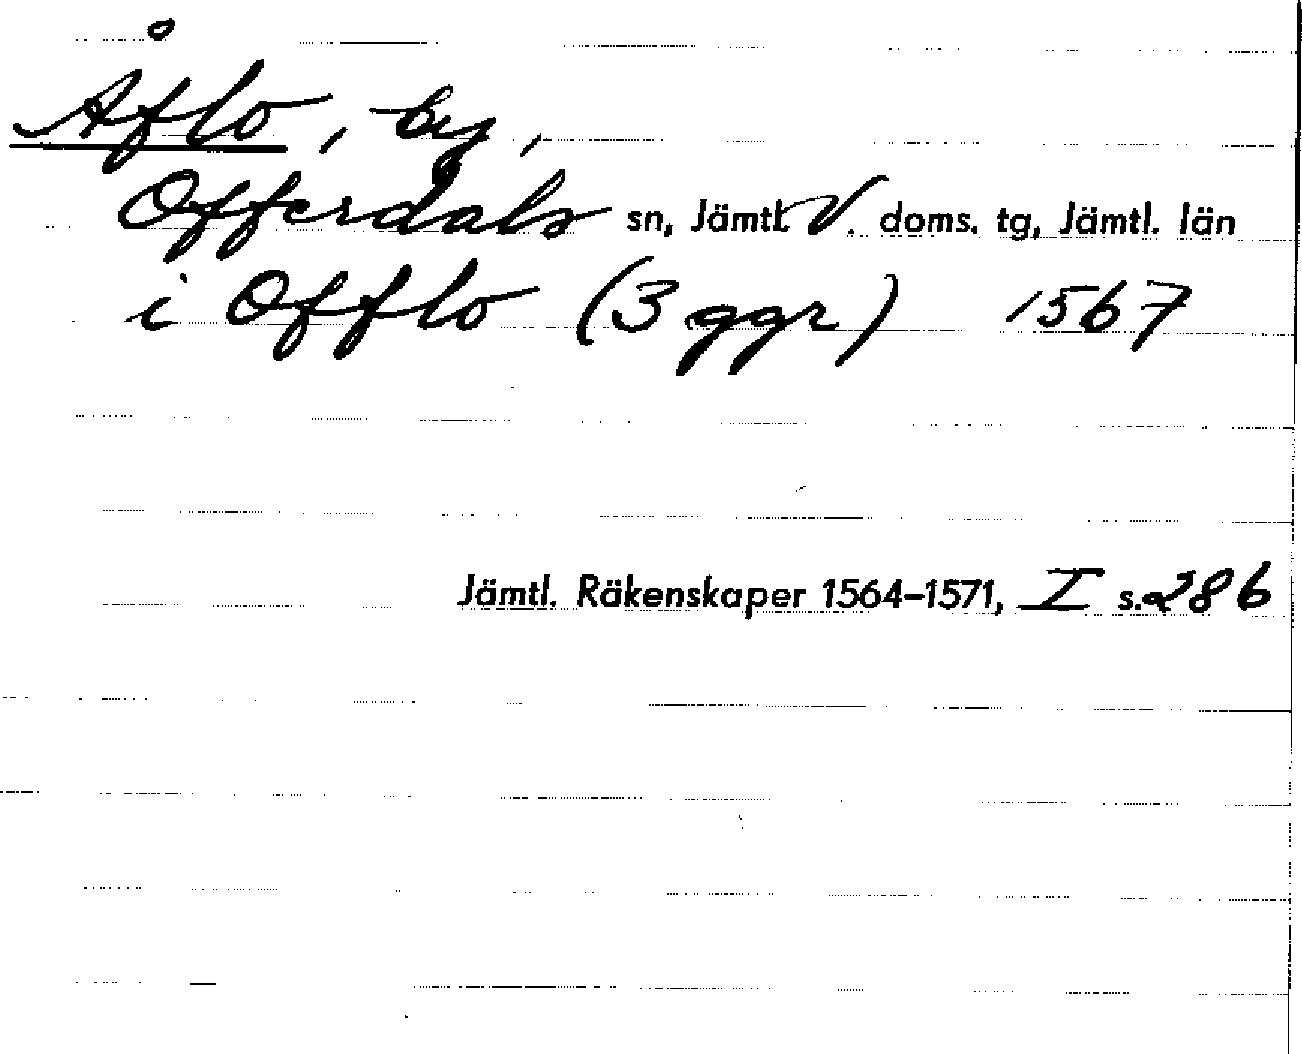 Åflo, by,
Offerdals sn, Jämtl. V. doms. tg, Jämtl. län
i Offlo (3 ggr) 1567
Jämtl. Räkenskaper 1564–1571, I s. 286